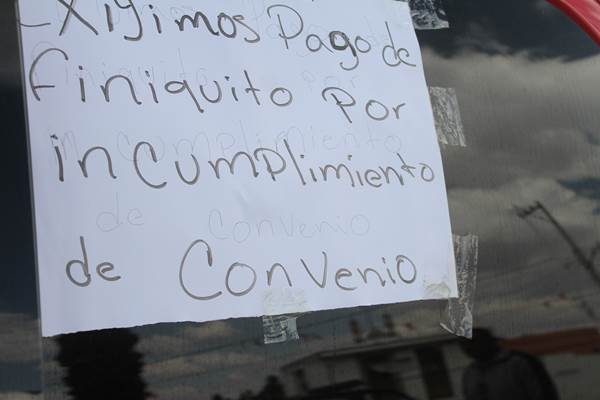 Exigimos Pago de
finiquito Por
incumplimiento
de Convenio